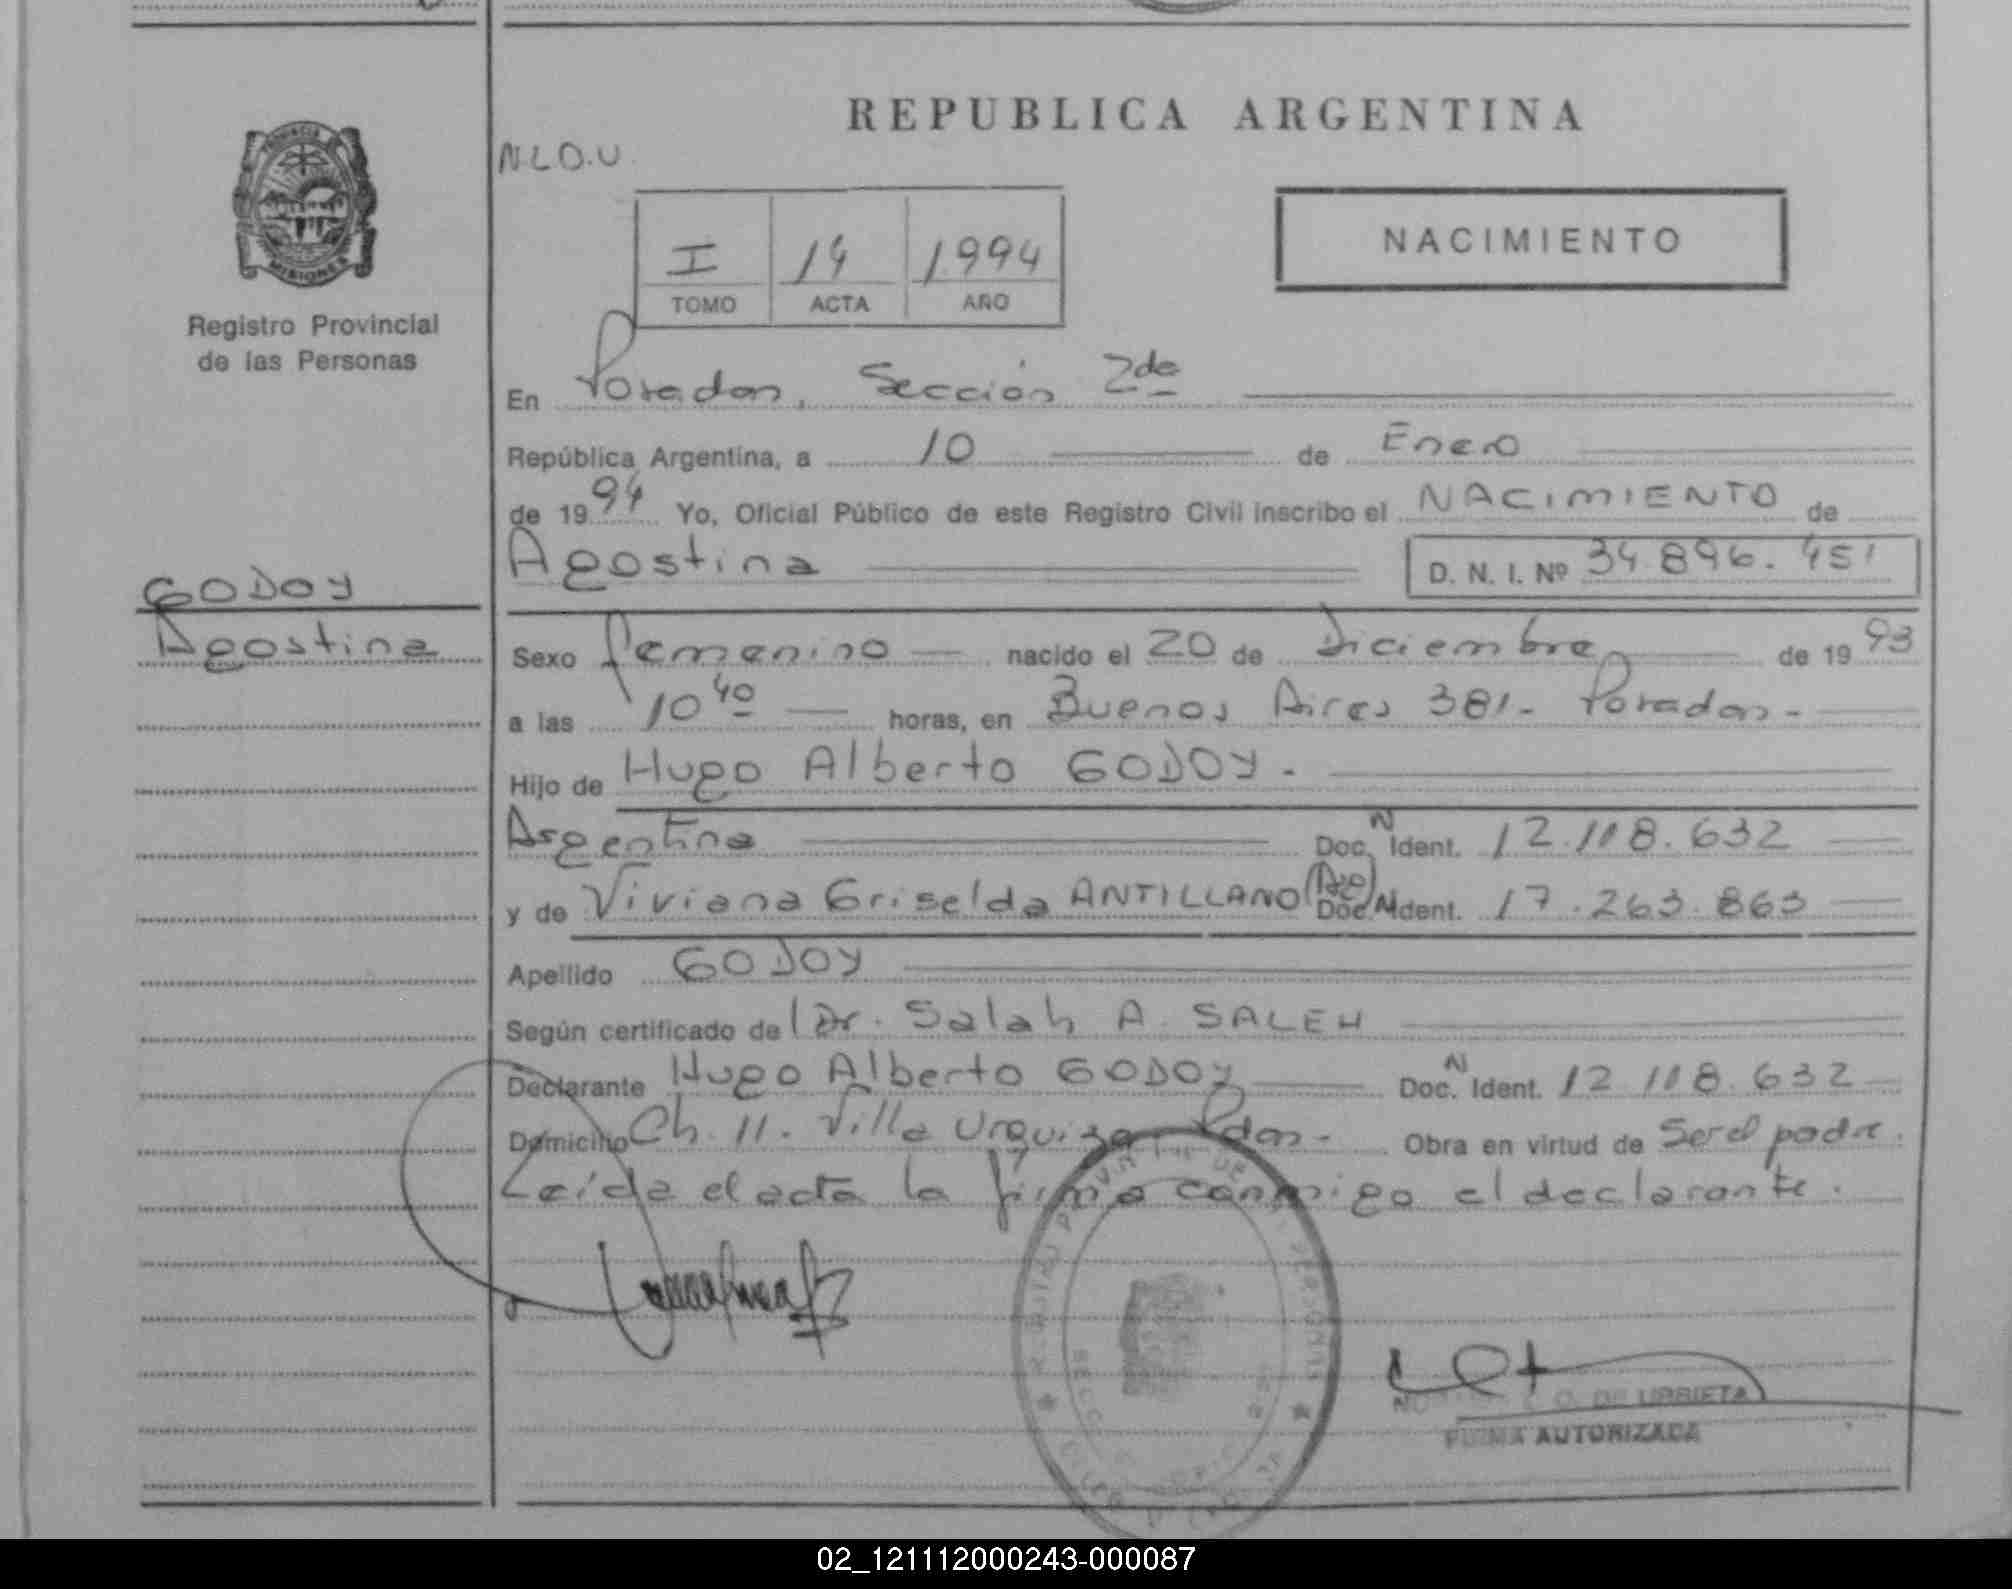 REPUBLICA ARGENTINA
N.L.O.U.
PROVINCIA
MISIONES
Registro Provincial
de las Personas
I 14 1994
TOMO ACTA AÑO
NACIMIENTO
En Posadas, Sección 2da
República Argentina, a 10 de Enero
de 1994 Yo, Oficial Público de este Registro Civil inscribo el NACIMIENTO de
Agostina D. N. I. Nº 34.896.451
GODOY
Agostina
Sexo femenino nacido el 20 de Diciembre de 1993
a las 10 40 horas, en Buenos Aires 381- Posadas-
Hijo de Hugo Alberto GODOY.-
Argentina Doc. N Ident. 12.118.632
y de Viviana Griselda ANTILLANO (Arg) Doc. N Ident. 17.263.863
Apellido GODOY
Según certificado de Dr. Salah A. SALEH
Declarante Hugo Alberto GODOY Doc. N Ident. 12.118.632
Domicilio Ch. 11. Villa Urquiza Pdas.- Obra en virtud de Ser el padre.
Leída el acta la firma conmigo el declarante.
C. O. DE URRIETA
FIRMA AUTORIZADA
02_121112000243-000087